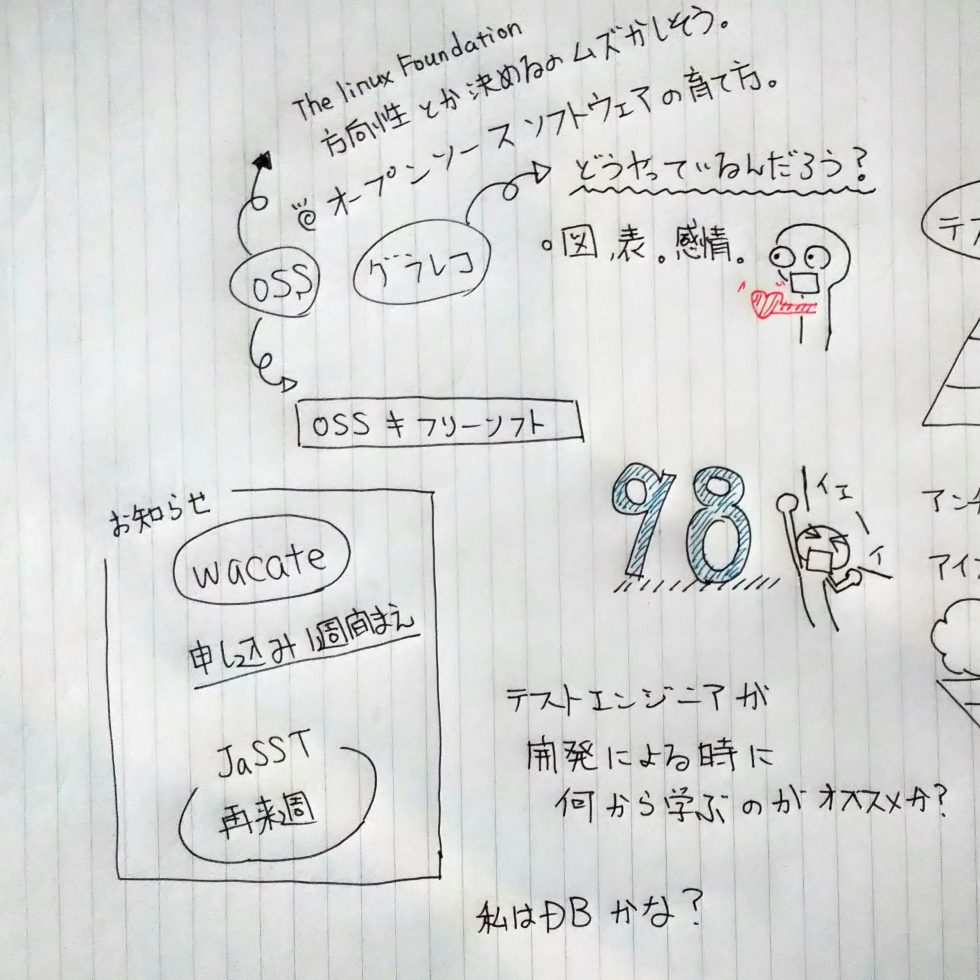 The linux Foundation
方向性とか決めるのムズかしそう。
オープンソースソフトウェアの育て方。
どうやっているんだろう?
OSS
グラレコ
。図、表。感情。
OSS キフリーソフト
お知らせ
wacate
申し込み1週間まえ
JaSST
再来週
98
イエ
イ
テストエンジニアが
開発による時に
何から学ぶのがオススメか?
私はDBかな?
アイ